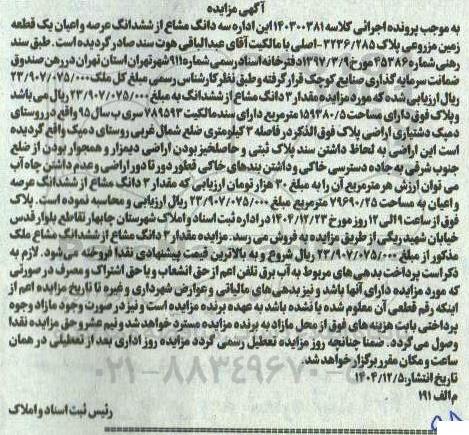 آگهی مزایده
به موجب پرونده اجرائی کلاسه ۱۴۰۳۰۰۳۸۱ این اداره سه دانگ مشاع از ششدانگ عرصه و اعیان یک قطعه
زمین مزروعی پلاک ۳۲۳۶/۲۸۵-اصلی با مالکیت آقای عبدالباقی هوت سند صادر گردیده است. طبق سند
رهنی شماره ۴۵۳۸۶ مورخ ۱۳۹۷/۳/۹ دفترخانه اسناد رسمی شماره ۹۱۱ شهر تهران استان تهران در رهن صندوق
ضمانت سرمایه گذاری صنایع کوچک قرار گرفته و طبق نظر کارشناس رسمی مبلغ کل ملک ۲۳/۹۰۷/۰۷۵/۰۰۰
ریال ارزیابی شده که مورد مزایده مقدار ۳ دانگ مشاع از ششدانگ به مبلغ ۲۳/۹۰۷/۰۷۵/۰۰۰ ریال می باشد
و پلاک فوق دارای مساحت ۱۵۹۳۸۰/۵ مترمربع دارای سند مالکیت ۷۸۹۵۹۳ سری ب سال ۹۵ واقع در روستای
دمبک دشتیاری اراضی پلاک فوق الذکر در فاصله ۳ کیلومتری ضلع شمال غربی روستای دمبک واقع گردیده
است این اراضی به لحاظ داشتن سند پلاک ثبتی و حاصلخیز بودن اراضی دیمزار و همجوار بودن از ضلع
جنوب شرقی به جاده دسترسی خاکی و داشتن بندهای خاکی قطور دور تا دور اراضی و عدم داشتن چاه آب
می توان ارزش هر مترمربع آن را به مبلغ ۳۰ هزار تومان ارزیابی که مقدار ۳ دانگ مشاع از ششدانگ عرصه
و اعیان به مساحت ۷۹۶۹۰/۲۵ مترمربع مبلغ ۲۳/۹۰۷/۰۷۵/۰۰۰ ریال ارزیابی و محاسبه نموده است. پلاک
فوق از ساعت ۹ الی ۱۲ روز مورخ ۱۴۰۴/۱۲/۲۳ در اداره ثبت اسناد و املاک شهرستان چابهار تقاطع بلوار قدس
خیابان شهید ریگی از طریق مزایده به فروش می رسد. مزایده مقدار ۳ دانگ مشاع از ششدانگ مشاع ملک
مذکور از مبلغ ۲۳/۹۰۷/۰۷۵/۰۰۰ ریال شروع و به بالاترین قیمت پیشنهادی نقدا فروخته می شود. لازم به
ذکر است پرداخت بدهی های مربوط به آب برق تلفن اعم از حق انشعاب و یا حق اشتراک و مصرف در صورتی
که مورد مزایده دارای آنها باشد و نیز بدهی های مالیاتی و عوارض شهرداری و غیره تا تاریخ مزایده اعم از
اینکه رقم قطعی آن معلوم شده یا نشده باشد به عهده برنده مزایده است و نیز در صورت وجود مازاد وجوه
پرداختی بابت هزینه های فوق از محل مازاد به برنده مزایده مسترد خواهد شد و نیم عشر و حق مزایده نقدا
وصول می گردد. ضمنا چنانچه روز مزایده تعطیل رسمی گردد مزایده روز اداری بعد از تعطیلی در همان
ساعت و مکان مقرر برگزار خواهد شد.
تاریخ انتشار: ۱۴۰۴/۱۲/۵
م الف ۱۹۱
رئیس ثبت اسناد و املاک
۰۲۱-۸۸۳۴۹۶۷۰